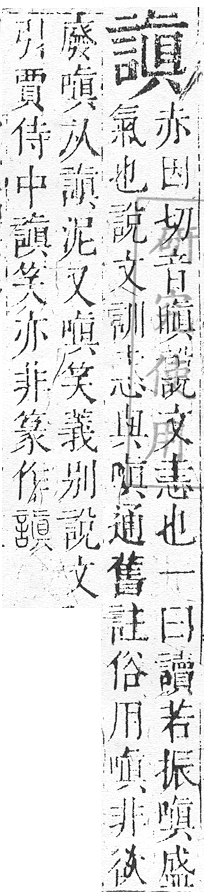 謓
亦因切音瞋說文恚也一曰讀若振嗔盛
氣也說文訓恚與嗔通舊註俗用嗔非欲
廢嗔从謓泥又嗔笑義別說文
引賈侍中謓笑亦非篆作謓
使用